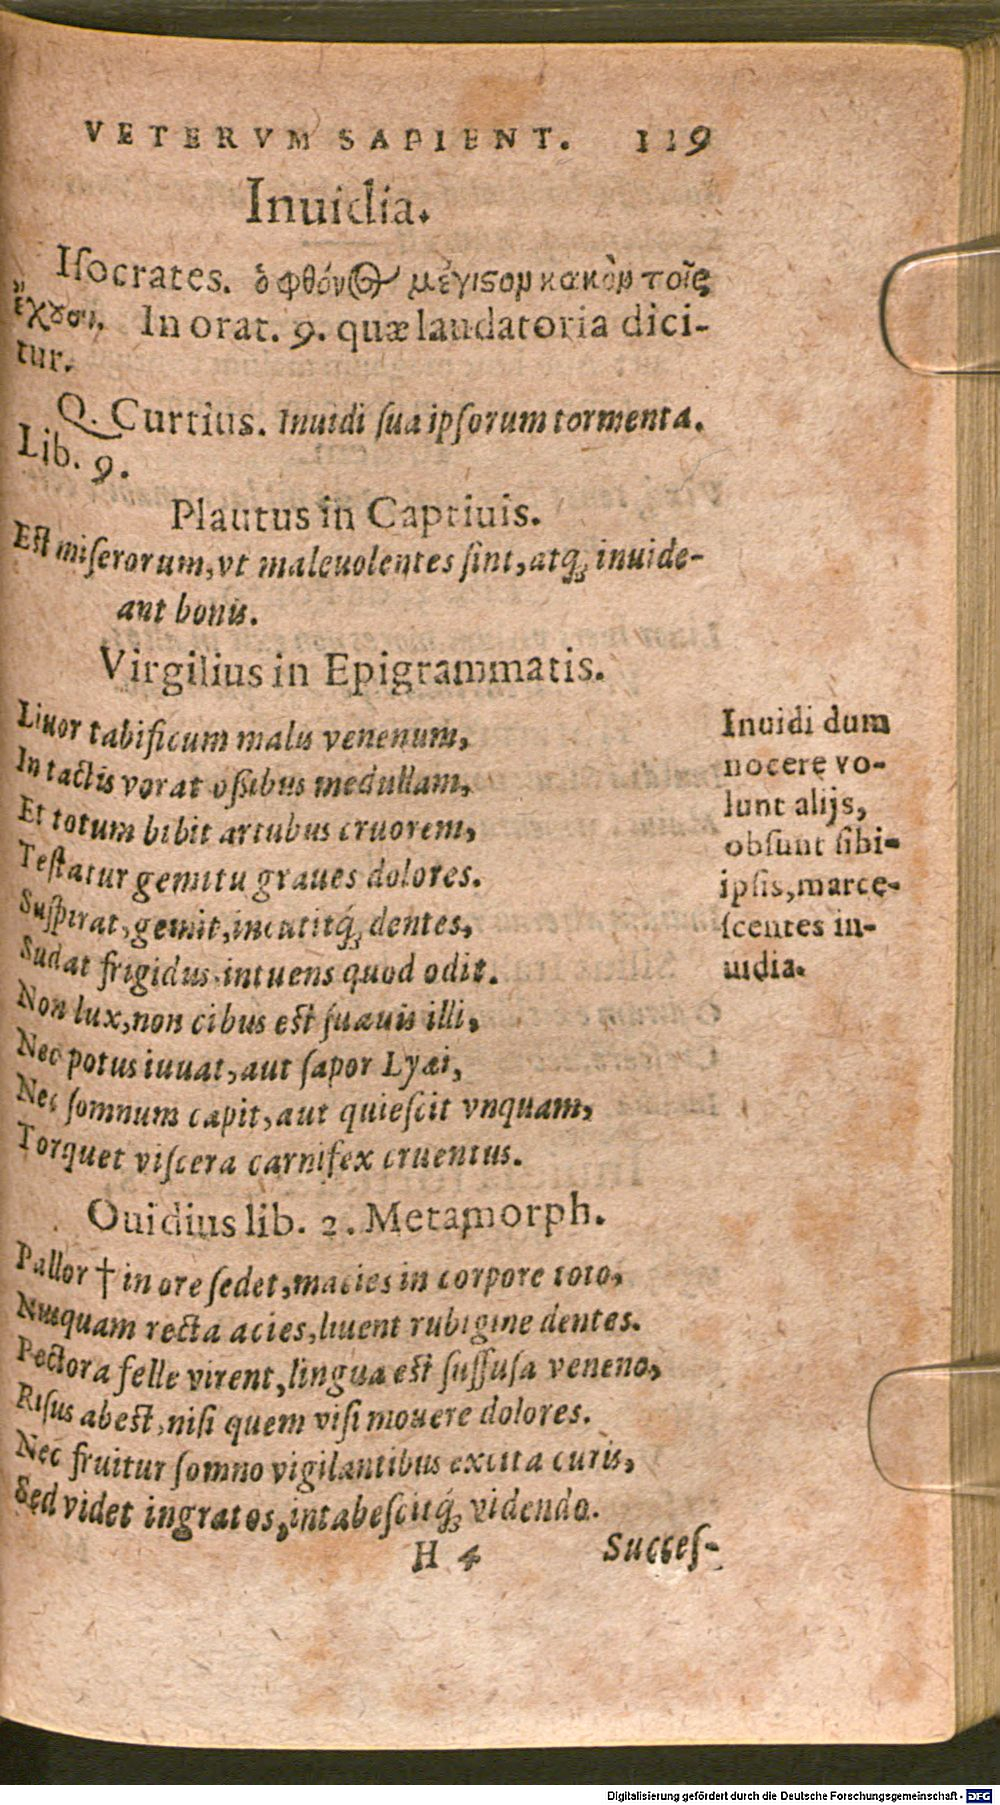 VETERVM SAPIENT. 119
Inuidia.
Iſocrates. ὁ φθόνος μέγιστον κακὸν τοῖς
ἔχουσι. In orat. 9. quæ laudatoria dici-
tur.
Q. Curtius. Inuidi ſua ipſorum tormenta.
Lib. 9.
Plautus in Captiuis.
Eſt miſerorum, vt maleuolentes ſint, atq; inuide-
ant bonis.
Virgilius in Epigrammatis.
Liuor tabificum malis venenum,
Intactis vorat oſsibus medullam,
Et totum bibit artubus cruorem,
Teſtatur gemitu graues dolores.
Suſpirat, gemit, incutitq́; dentes,
Sudat frigidus intuens quod odit.
Non lux, non cibus eſt ſuauis illi,
Nec potus iuuat, aut ſapor Lyæi,
Nec ſomnum capit, aut quieſcit vnquam,
Torquet viſcera carnifex cruentus.
Inuidi dum
nocere vo-
lunt alijs,
obſunt ſibi-
ipſis, marce-
ſcentes in-
uidia.
Ouidius lib. 2. Metamorph.
Pallor † in ore ſedet, macies in corpore toto,
Nusquam recta acies, liuent rubigine dentes.
Pectora felle virent, lingua eſt ſuffuſa veneno,
Riſus abeſt, niſi quem viſi mouere dolores.
Nec fruitur ſomno vigilantibus excita curis,
Sed videt ingratos, intabeſcitq́; videndo.
H 4 Succeſ-
Digitalisierung gefördert durch die Deutsche Forschungsgemeinschaft - DFG